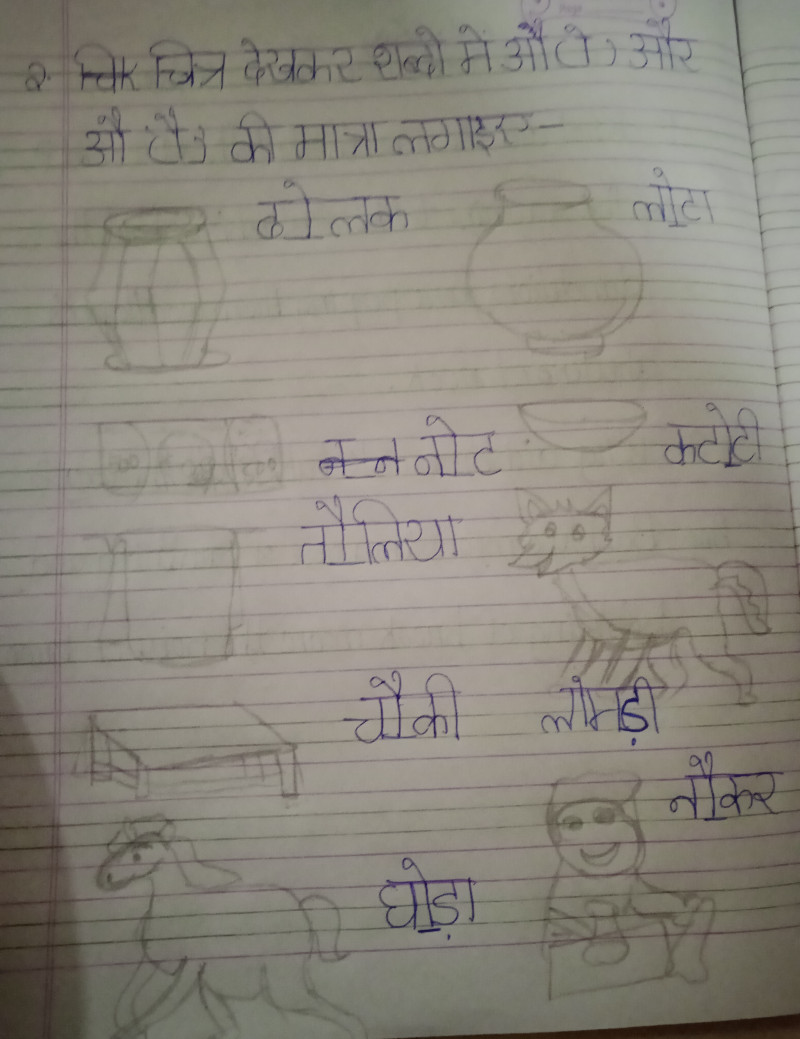 २. चिK चित्र देखकर शब्दो में औ (ो) और
औ (ौ) की मात्रा लगाइए-
ढोलक लोटा
नोट कटोटी
तौलिया
चौकी लोमड़ी
नौकर
घोड़ा